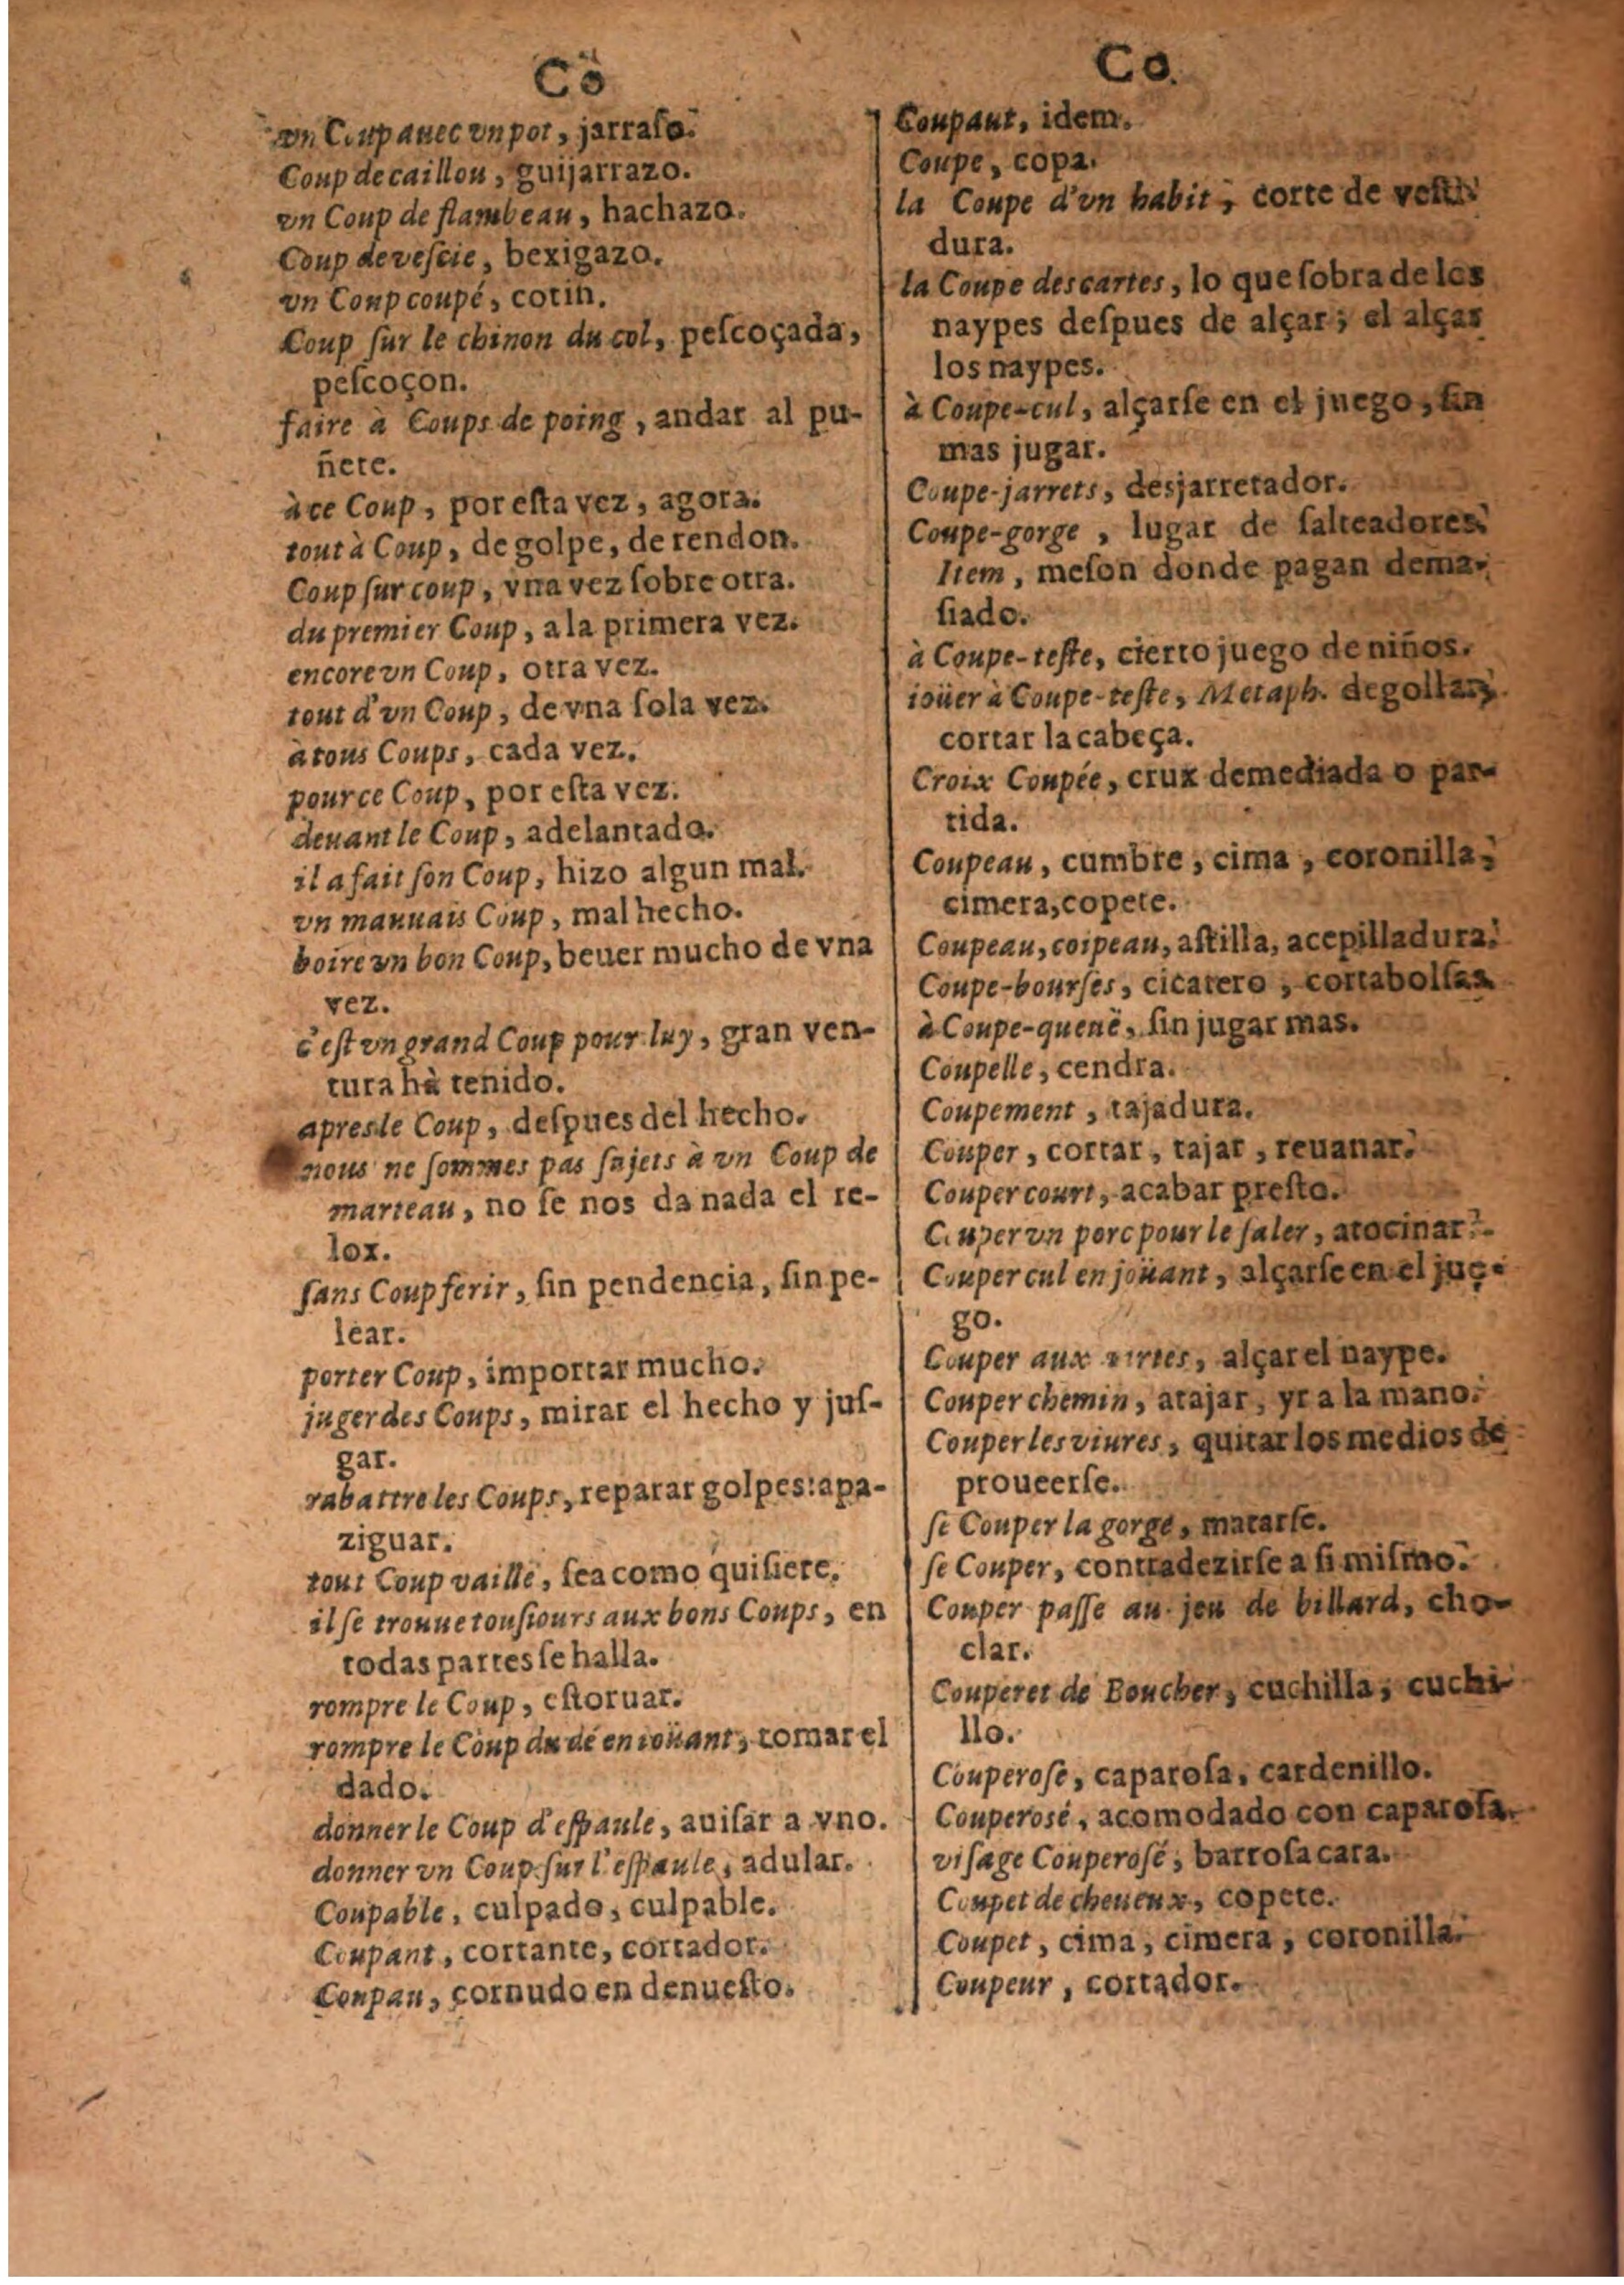 Co
vn Coup auec vn pot, jarraſo.
Coup de caillou, guijarrazo.
vn Coup de flambeau, hachazo.
Coup de veſcie, bexigazo.
vn Coup coupé, cotin.
Coup ſur le chinon du col, peſcoçada,
peſcoçon.
faire à Coups de poing, andar al pu-
ñete.
à ce Coup, por eſta vez, agora.
tout à Coup, de golpe, de rendon.
Coup ſur coup, vna vez ſobre otra.
du premier Coup, a la primera vez.
encore vn Coup, otra vez.
tout d'vn Coup, de vna ſola vez.
à tous Coups, cada vez.
pour ce Coup, por eſta vez.
deuant le Coup, adelantado.
il a fait ſon Coup, hizo algun mal.
vn mauuais Coup, mal hecho.
boire vn bon Coup, beuer mucho de vna
vez.
c'eſt vn grand Coup pour luy, gran ven-
tura hà tenido.
apres le Coup, deſpues del hecho.
nous ne ſommes pas ſujets à vn Coup de
marteau, no ſe nos da nada el re-
lox.
ſans Coup ferir, ſin pendencia, ſin pe-
lear.
porter Coup, importar mucho.
juger des Coups, mirar el hecho y juſ-
gar.
rabattre les Coups, reparar golpes: apa-
ziguar.
tout Coup vaille, ſea como quiſiere.
il ſe trouue touſiours aux bons Coups, en
todas partes ſe halla.
rompre le Coup, eſtoruar.
rompre le Coup du dé en ioüant, tomar el
dado.
donner le Coup d'eſpaule, auiſar a vno.
donner vn Coup ſur l'eſpaule, adular.
Coupable, culpado, culpable.
Coupant, cortante, cortador.
Coupau, cornudo en denueſto.
Co.
Coupaut, idem.
Coupe, copa.
la Coupe d'vn habit, corte de veſti-
dura.
la Coupe des cartes, lo que ſobra de los
naypes deſpues de alçar; el alçar
los naypes.
à Coupe-cul, alçarſe en el juego, ſin
mas jugar.
Coupe-jarrets, desjarretador.
Coupe-gorge, lugar de ſalteadores.
Item, meſon donde pagan dema-
ſiado.
à Coupe-teſte, cierto juego de niños.
ioüer à Coupe-teſte, Metaph. degollar,
cortar la cabeça.
Croix Coupée, crux demediada o par-
tida.
Coupeau, cumbre, cima, coronilla,
cimera, copete.
Coupeau, coipeau, aſtilla, acepilladura.
Coupe-bourſes, cicatero, cortabolſas
à Coupe-queuë, ſin jugar mas.
Coupelle, cendra.
Coupement, tajadura.
Couper, cortar, tajar, reuanar.
Couper court, acabar preſto.
Couper vn porc pour le ſaler, atocinar.
Couper cul en joüant, alçarſe en el jue-
go.
Couper aux cartes, alçar el naype.
Couper chemin, atajar, yr a la mano.
Couper les viures, quitar los medios de
proueerſe.
ſe Couper la gorge, matarſe.
ſe Couper, contradezirſe a ſi miſmo.
Couper paſſe au jeu de billard, cho-
clar.
Couperet de Boucher, cuchilla, cuchi-
llo.
Couperoſe, caparoſa, cardenillo.
Couperosé, acomodado con caparoſa.
viſage Couperoſé, barroſa cara.
Coupet de cheueux, copete.
Coupet, cima, cimera, coronilla.
Coupeur, cortador.